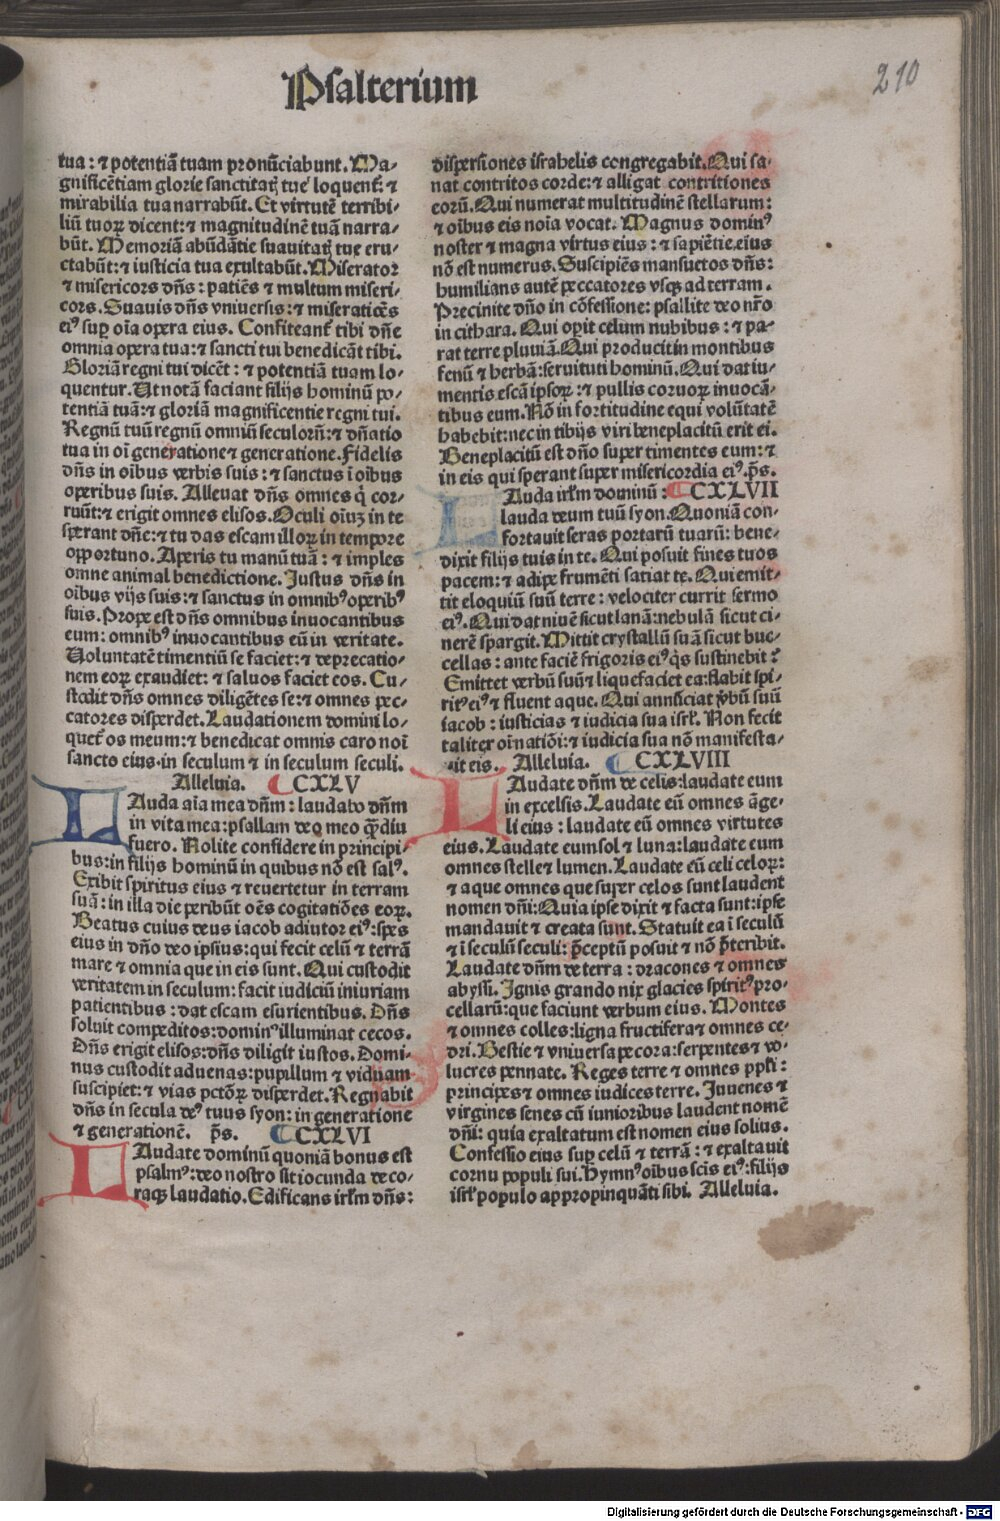 Psalterium
210
tua: ⁊ potentiā tuam pronūciabunt. Ma-
gnificētiam glorie sanctitatꝭ tue loquent᷑: ⁊
mirabilia tua narrabūt. Et virtutē terribi-
liū tuoꝝ dicent: ⁊ magnitudinē tuā narra-
būt. Memoriā abūdātie suauitatꝭ tue eru-
ctabūt: ⁊ iusticia tua exultabūt. Miserator
⁊ misericors dn̄s: patiēs ⁊ multum miseri-
cors. Suauis dn̄s vniuersis: ⁊ miseratiōes
eiꝰ suꝑ oīa opera eius. Confiteant᷑ tibi dn̄e
omnia opera tua: ⁊ sancti tui benedicāt tibi.
Gloriā regni tui dicēt: ⁊ potentiā tuam lo-
quentur. Ut notā faciant filijs hominū po-
tentiā tuā: ⁊ gloriā magnificentie regni tui.
Regnū tuū regnū omniū seculorū: ⁊ dn̄atio
tua in oī generatione ⁊ generatione. Fidelis
dn̄s in oībus verbis suis: ⁊ sanctus ī oībus
operibus suis. Alleuat dn̄s omnes q̇ cor-
ruūt: ⁊ erigit omnes elisos. Oculi oīuꝫ in te
sperant dn̄e: ⁊ tu das escam illoꝝ in tempore
opportuno. Aperis tu manū tuā: ⁊ imples
omne animal benedictione. Justus dn̄s in
oībus vijs suis: ⁊ sanctus in omnibꝰ operibꝰ
suis. Prope est dn̄s omnibus inuocantibus
eum: omnibꝰ inuocantibus eū in veritate.
Uoluntatē timentiū se faciet: ⁊ deprecatio-
nem eoꝝ exaudiet: ⁊ saluos faciet eos. Cu-
stodit dn̄s omnes diligētes se: ⁊ omnes pec-
catores disperdet. Laudationem domini lo-
quet᷑ os meum: ⁊ benedicat omnis caro noī
sancto eius in seculum ⁊ in seculum seculi.
Alleluia. CXLV
LAuda aīa mea dn̄m: laudabo dn̄m
in vita mea: psallam deo meo qͣ̄diu
fuero. Nolite confidere in principi-
bus: in filijs hominū in quibus nō est salꝰ.
Exibit spiritus eius ⁊ reuertetur in terram
suā: in illa die peribūt oēs cogitatiōes eoꝝ.
Beatus cuius deus iacob adiutor eiꝰ: spes
eius in dn̄o deo ipsius: qui fecit celū ⁊ terrā
mare ⁊ omnia que in eis sunt. Qui custodit
veritatem in seculum: facit iudiciū iniuriam
patientibus: dat escam esurientibus. Dn̄s
soluit compeditos: dominꝰ illuminat cecos.
Dn̄s erigit elisos: dn̄s diligit iustos. Domi-
nus custodit aduenas: pupillum ⁊ viduam
suscipiet: ⁊ vias pctōꝝ disperdet. Regnabit
dn̄s in secula deꝰ tuus syon: in generatione
⁊ generationē. p̄s. CXLVI
LAudate dominū quoniā bonus est
psalmꝰ: deo nostro sit iocunda deco-
raqꝫ laudatio. Edificans irl̄m dn̄s:
dispersiones israhelis congregabit. Qui sa-
nat contritos corde: ⁊ alligat contritiones
eorū. Qui numerat multitudinē stellarum:
⁊ oībus eis noīa vocat. Magnus dominꝰ
noster ⁊ magna virtus eius: ⁊ sapiētie eius
nō est numerus. Suscipiēs mansuetos dn̄s:
humilians autē peccatores vsqꝫ ad terram.
Precinite dn̄o in cōfessione: psallite deo nr̄o
in cithara. Qui oꝑit celum nubibus: ⁊ pa-
rat terre pluuiā. Qui producit in montibus
fenū ⁊ herbā: seruituti hominū. Qui dat iu-
mentis escā ipsoꝝ: ⁊ pullis coruoꝝ inuocā-
tibus eum. Nō in fortitudine equi volūtatē
habebit: nec in tibijs viri beneplacitū erit ei.
Beneplacitū est dn̄o super timentes eum: ⁊
in eis qui sperant super misericordia eiꝰ. p̄s.
LAuda irl̄m dominū: CXLVII
lauda deum tuū syon. Quoniā con-
fortauit seras portarū tuarū: bene-
dixit filijs tuis in te. Qui posuit fines tuos
pacem: ⁊ adipe frumēti satiat te. Qui emit-
tit eloquiū suū terre: velociter currit sermo
eiꝰ. Qui dat niuē sicut lanā: nebulā sicut ci-
nerē spargit. Mittit crystallū suā sicut buc-
cellas: ante faciē frigoris eiꝰ qͥs sustinebit?
Emittet verbū suū ⁊ liquefaciet ea: flabit spi-
ritꝰ eiꝰ ⁊ fluent aque. Qui annūciat v̓bū suū
iacob: iusticias ⁊ iudicia sua isrl̄. Non fecit
taliter oī natiōi: ⁊ iudicia sua nō manifesta-
uit eis. Alleluia. CXLVIII
LAudate dn̄m de celis: laudate eum
in excelsis. Laudate eū omnes āge-
li eius: laudate eū omnes virtutes
eius. Laudate eum sol ⁊ luna: laudate eum
omnes stelle ⁊ lumen. Laudate eū celi celoꝝ:
⁊ aque omnes que super celos sunt laudent
nomen dn̄i: Quia ipse dixit ⁊ facta sunt: ipse
mandauit ⁊ creata sunt. Statuit ea ī seculū
⁊ ī seculū seculi: p̄ceptū posuit ⁊ nō p̄teribit.
Laudate dn̄m de terra: dracones ⁊ omnes
abyssi. Ignis grando nix glacies spiritꝰ pro-
cellarū: que faciunt verbum eius. Montes
⁊ omnes colles: ligna fructifera ⁊ omnes ce-
dri. Bestie ⁊ vniuersa pecora: serpentes ⁊ vo-
lucres pennate. Reges terre ⁊ omnes ppl̄i:
principes ⁊ omnes iudices terre. Juuenes ⁊
virgines senes cū iunioribus laudent nomē
dn̄i: quia exaltatum est nomen eius solius.
Confessio eius suꝑ celū ⁊ terrā: ⁊ exaltauit
cornu populi sui. Hymnꝰ oībus scīs eiꝰ: filijs
isrl̄ populo appropinquāti sibi. Alleluia.
Digitalisierung gefördert durch die Deutsche Forschungsgemeinschaft - DFG